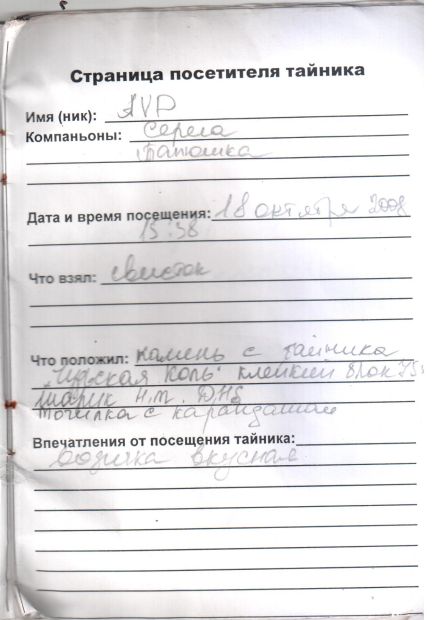 Страница посетителя тайника
Имя (ник): AVP
Компаньоны: Серега
Татошка
Дата и время посещения: 18 октября 2008
13:38
Что взял: свисток
Что положил: камень с тайника
коль" клейкий блок 75
шарик н.т. ДНБ
точилка с карандашом
Впечатления от посещения тайника:
водичка вкусная